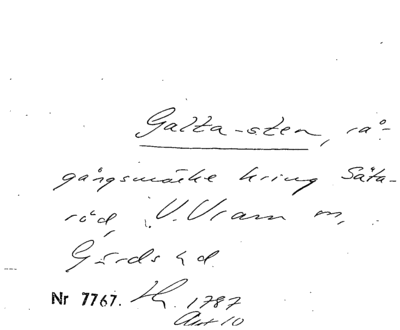 Galta-sten, rå-
gångsmärke kring Säta-
röd, V. Vram sn,
Gärds hd.
Nr 7767. Hs. 1787
Akt 10